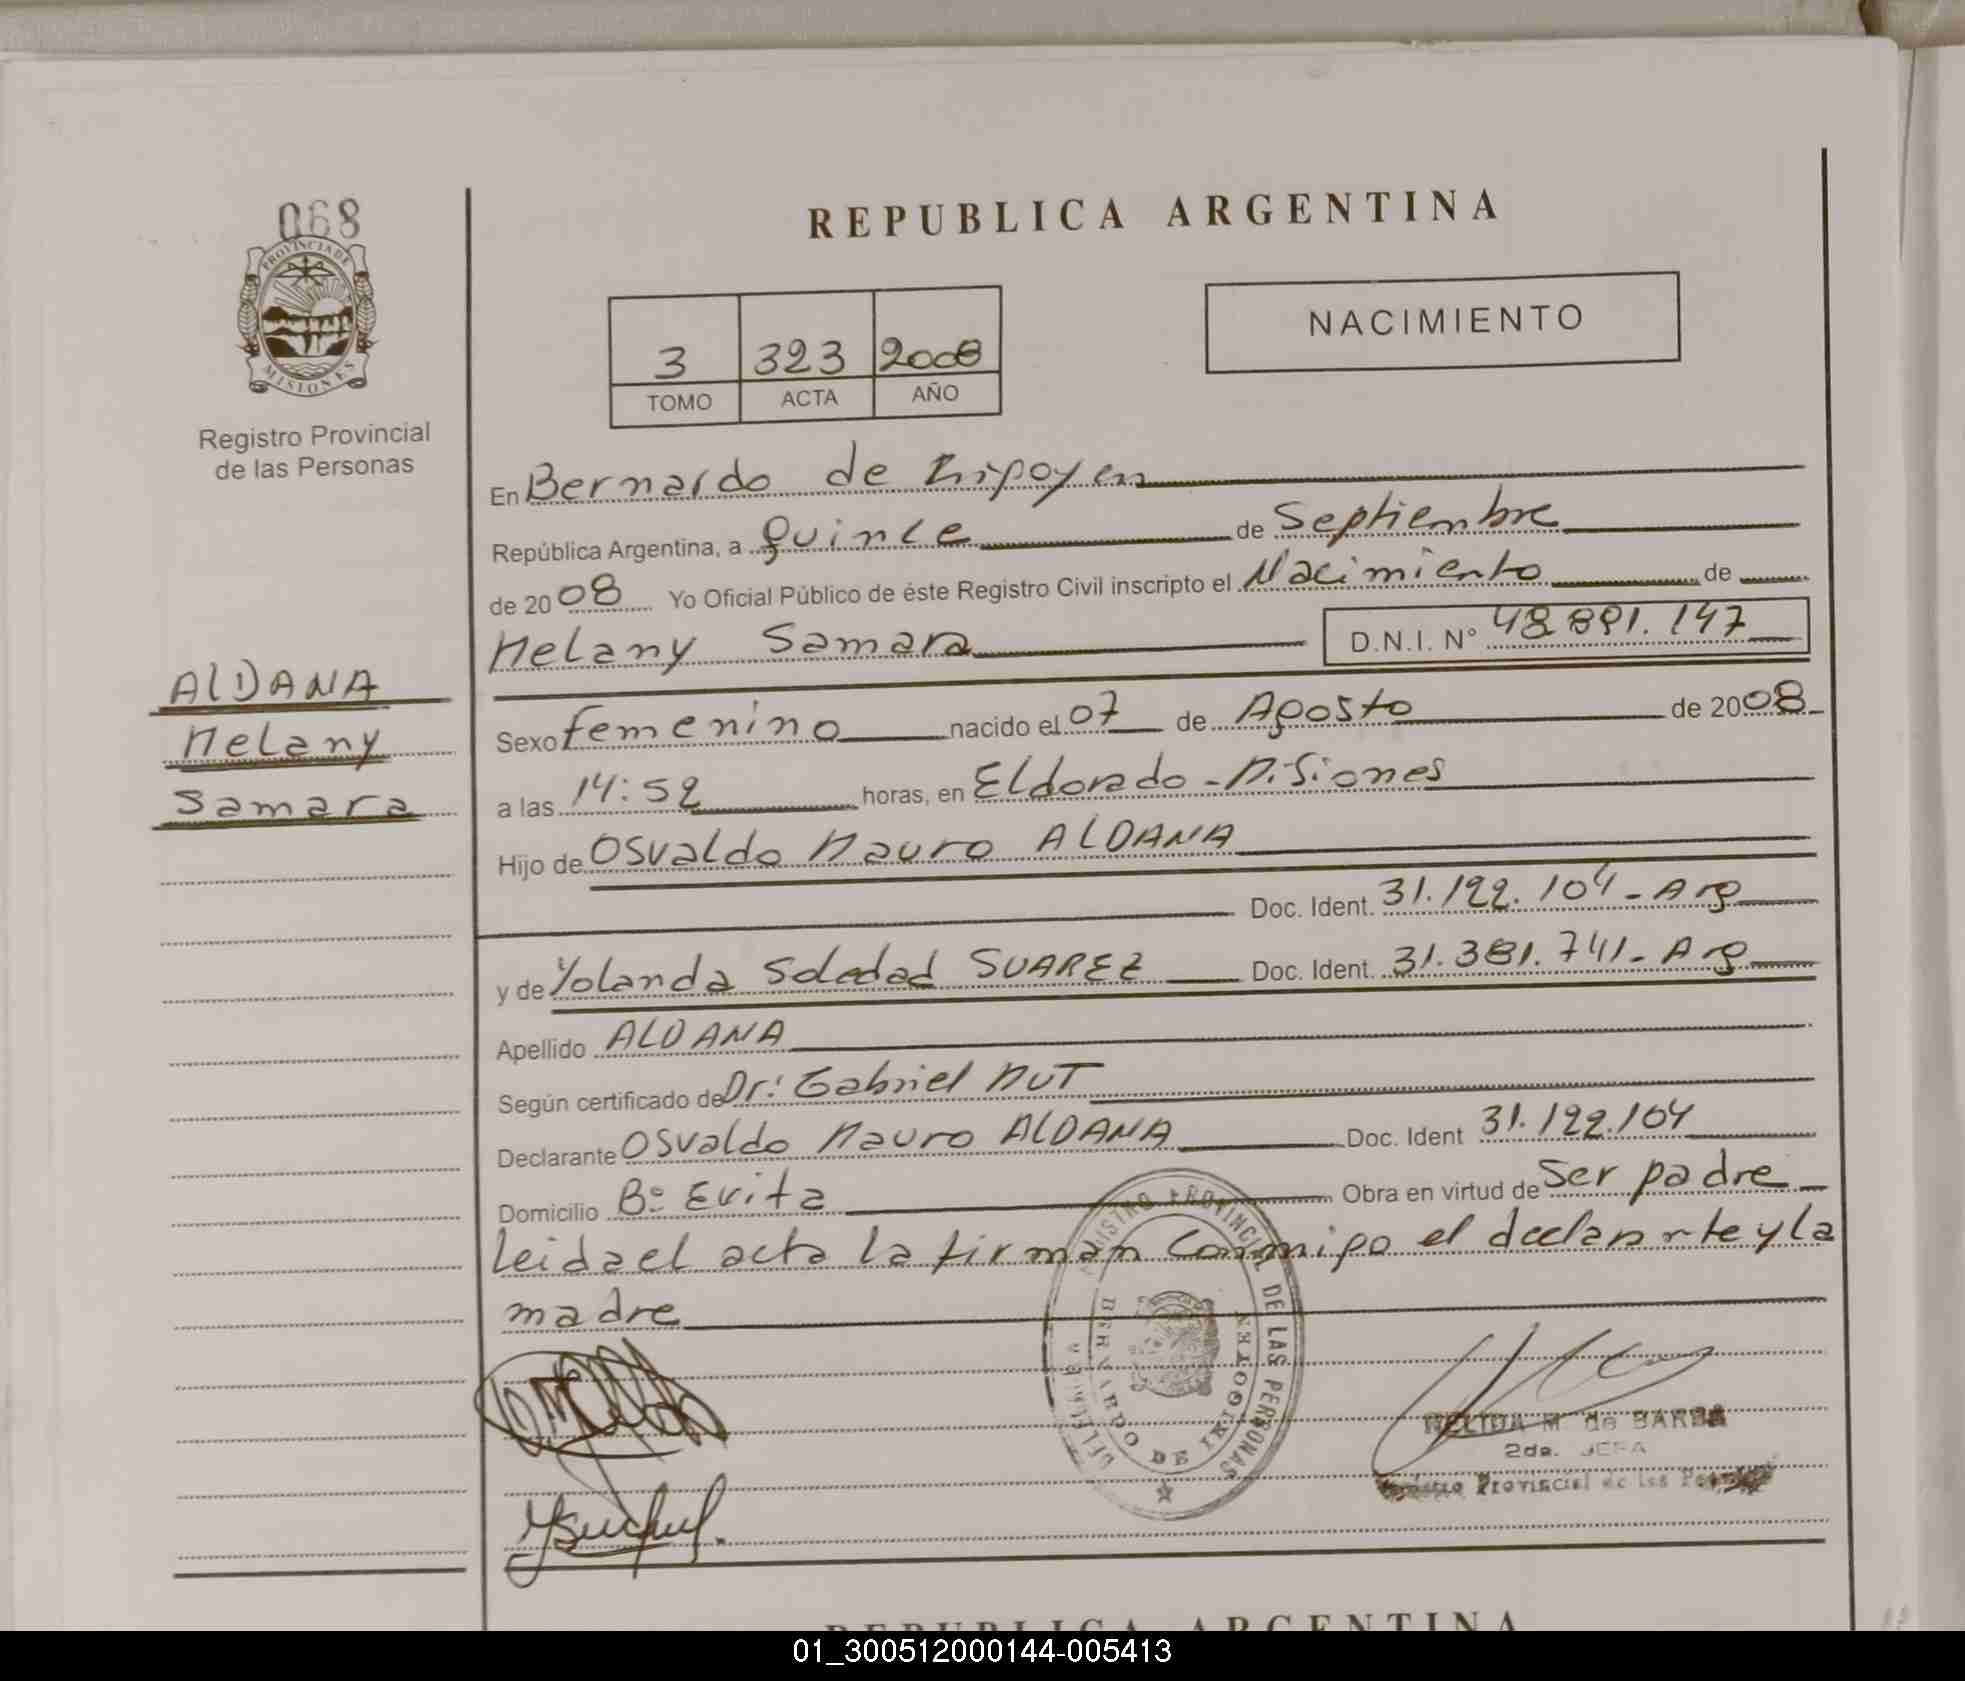 068
PROVINCIA DE
MISIONES
Registro Provincial
de las Personas
ALDANA
Melany
Samara
REPUBLICA ARGENTINA
3 323 2008
TOMO ACTA AÑO
NACIMIENTO
En Bernardo de Irigoyen
República Argentina, a quince de Septiembre
de 2008 Yo Oficial Público de éste Registro Civil inscripto el Nacimiento de
Melany Samara D.N.I. N° 48.891.147
Sexo femenino nacido el 07 de Agosto de 2008
a las 14:52 horas, en Eldorado - Misiones
Hijo de Osvaldo Mauro ALDANA
Doc. Ident. 31.122.104 - Arg
y de Yolanda Soledad SUAREZ Doc. Ident. 31.381.741 - Arg
Apellido ALDANA
Según certificado de Dr: Gabriel MUT
Declarante Osvaldo Mauro ALDANA Doc. Ident 31.122.104
Domicilio B° Evita Obra en virtud de ser padre
leida el acta la firman conmigo el declarante y la
madre
REGISTRO PROVINCIAL DE LAS PERSONAS
BERNARDO DE IRIGOYEN
NELIDA M. de BARBA
2da. JEFA
Registro Provincial de las Personas
REPUBLICA ARGENTINA
01_300512000144-005413